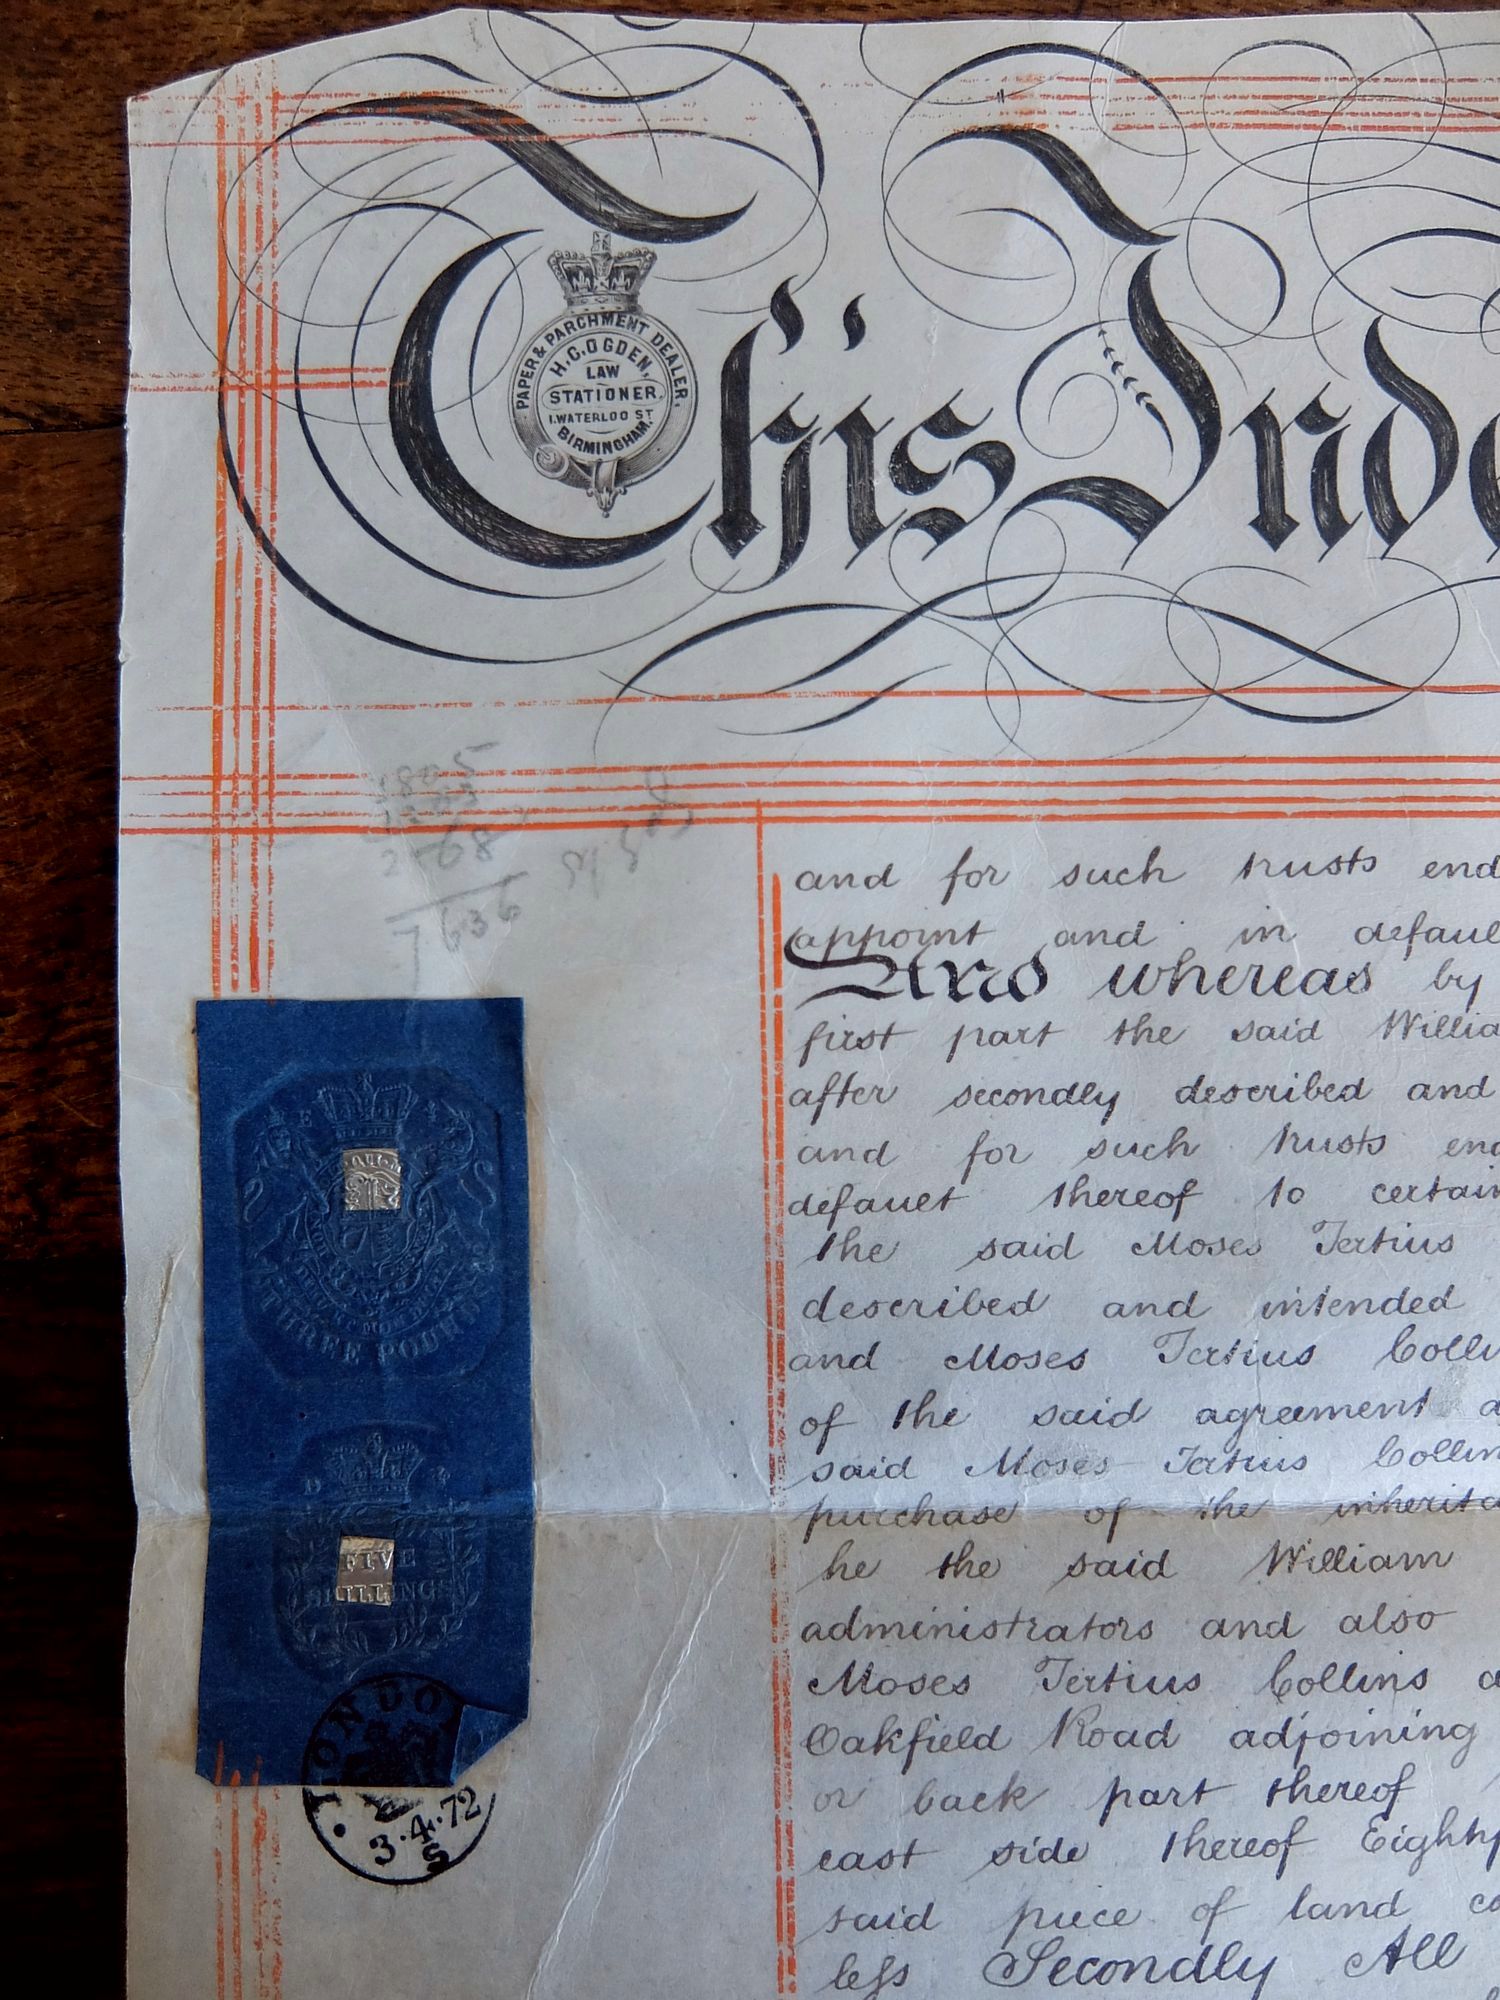 This Inde
PAPER & PARCHMENT DEALER,
H. C. OGDEN,
LAW
STATIONER,
1, WATERLOO ST
BIRMINGHAM.
1805
2768
7636
and for such trusts end
appoint and in defaul
And whereas by
first part the said Willia
after secondly described and
and for such trusts end
defauet thereof to certain
the said Moses Tertius
described and intended
and Moses Tertius Colli
of the said agreement a
said Moses Tertius Collin
purchase of the inherita
he the said William
administrators and also
Moses Tertius Collins a
Oakfield Road adjoining
or back part thereof
east side thereof Eighty
said piece of land co
less Secondly All
THREE POUNDS
FIVE
SHILLINGS
LONDO
3.4.72
S